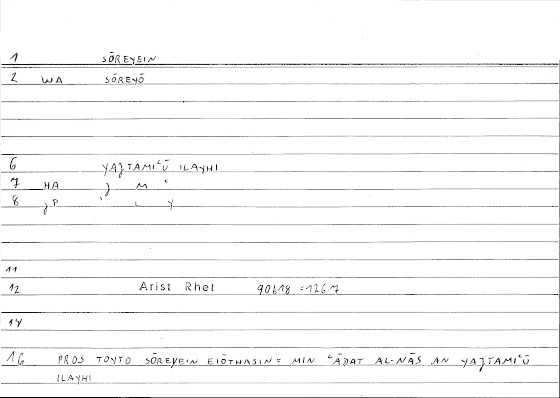 1 SŌREYEIN
2 WA SŌREYŌ
6 YAǧTAMIʿŪ ILAYHI
7 HA ǧ M ʿ
8 ǧP ʾ L Y
11
12 Arist Rhet 90b18 = 126.7
14
16 PROS TOYTO SŌREYEIN EIŌTHASIN = MIN ʿĀDAT AL-NĀS AN YAǧTAMIʿŪ
ILAYHI